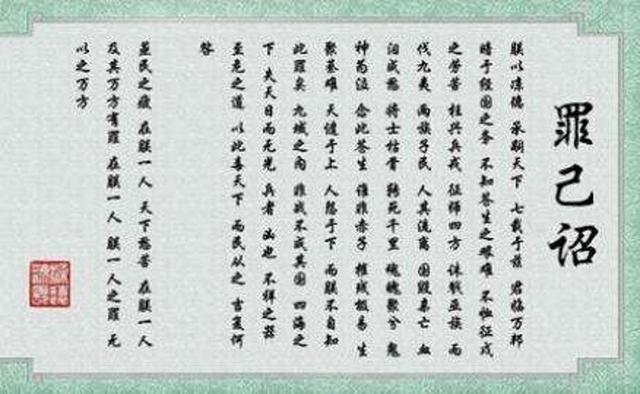 罪己诏
朕以凉德 承嗣天下 七载于兹 君临万邦
暗于经国之务 不知苍生之艰难 不恤征戍
之劳苦 枉兴兵戎 征师四方 诛戮巫族 而
伐九夷 两族子民 人其流离 国毁亲亡 血
泪成愁 将士枯骨 殍死千里 魂魄聚兮 鬼
神为泣 念此苍生 谁非赤子 摧残极易 生
聚甚难 天谴于上 人怨于下 而朕不自知
此罪矣 九域之内 非战不成其国 四海之
下 夫天日而无光 兵者 凶也 不祥之器
至尧之道 以此毒天下 而民从之 吉复何
咎
噩民之疲 在朕一人 天下愁苦 在朕一人
及其万方有罪 在朕一人 朕一人之罪 无
以之万方